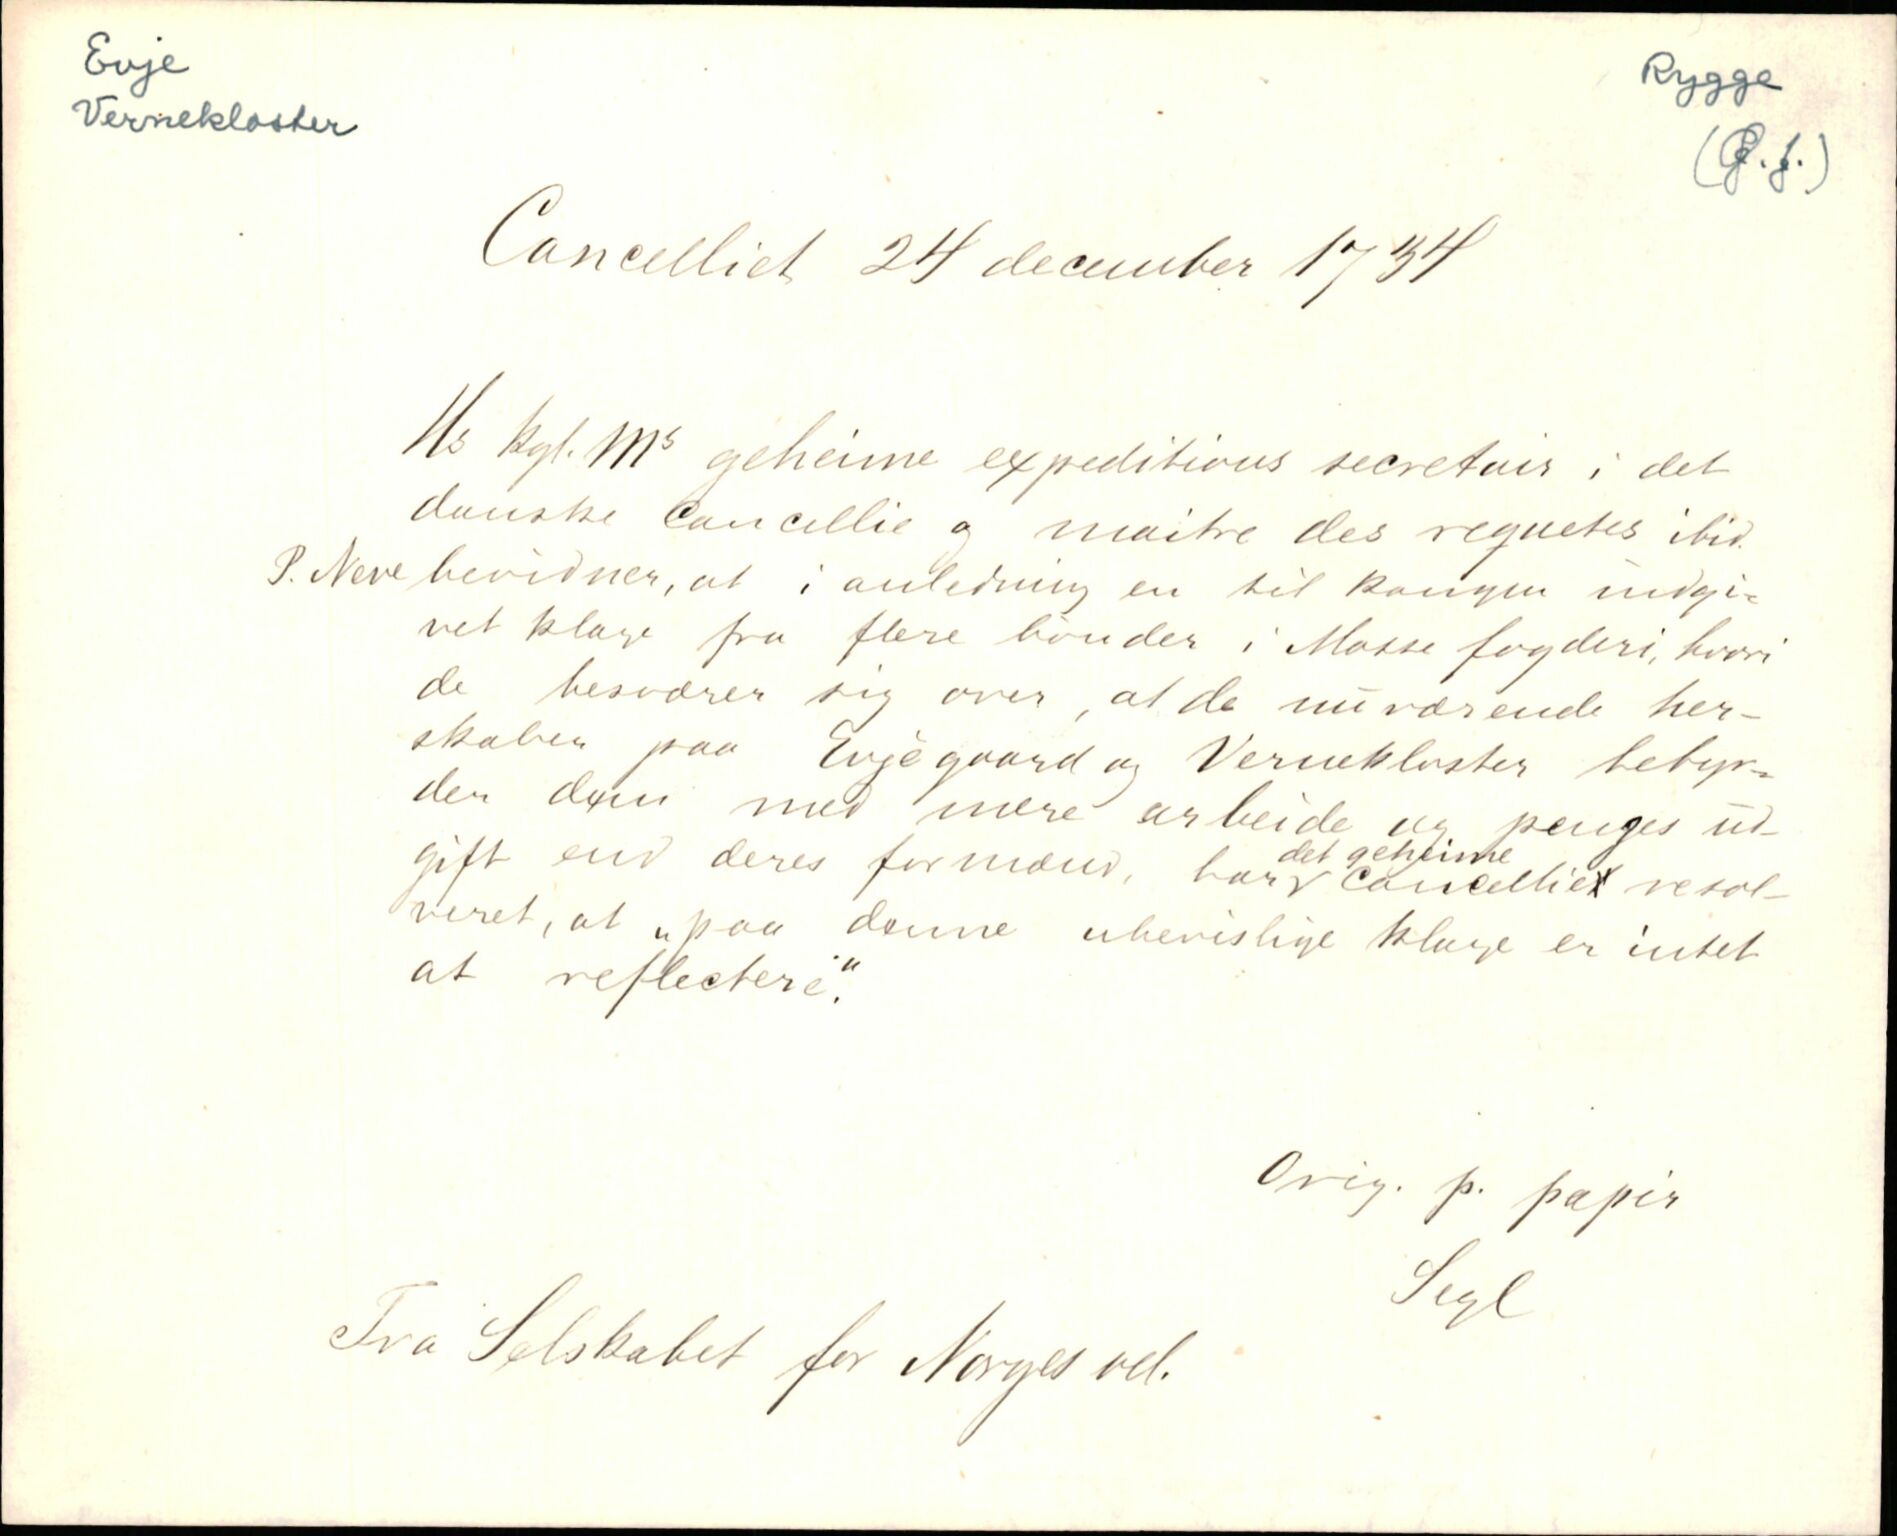 Evje
Vernekloster
Rygge
(Ø.f.)
Cancelliet 24 december 1734
Hs kgl. Ms geheime expeditions secretair i det
danske Cancellie og maitre des requetes ibid.
P. Neve bevidner, at i anledning en til kongen indgi-
vet klage fra flere bønder i Mosse fogderi, hvori
de besværer sig over, at de nuværende her-
skaber paa Evjegaard og Vernekloster bebyr-
der dem med mere arbeide og penges ud-
gift end deres formænd, har det geheime Cancellie resol-
veret, at „paa denne ubevislige klage er intet
at reflectere".
Orig. p. papir
Segl
Fra Selskabet for Norges vel.